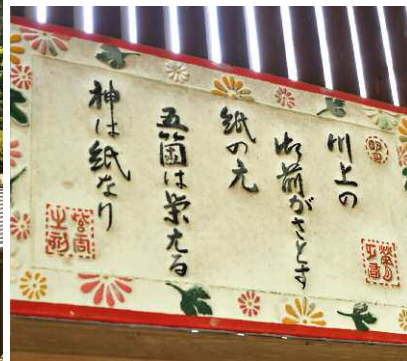 川上の
御前がさとす
紙の元
五箇は栄える
神は紙なり